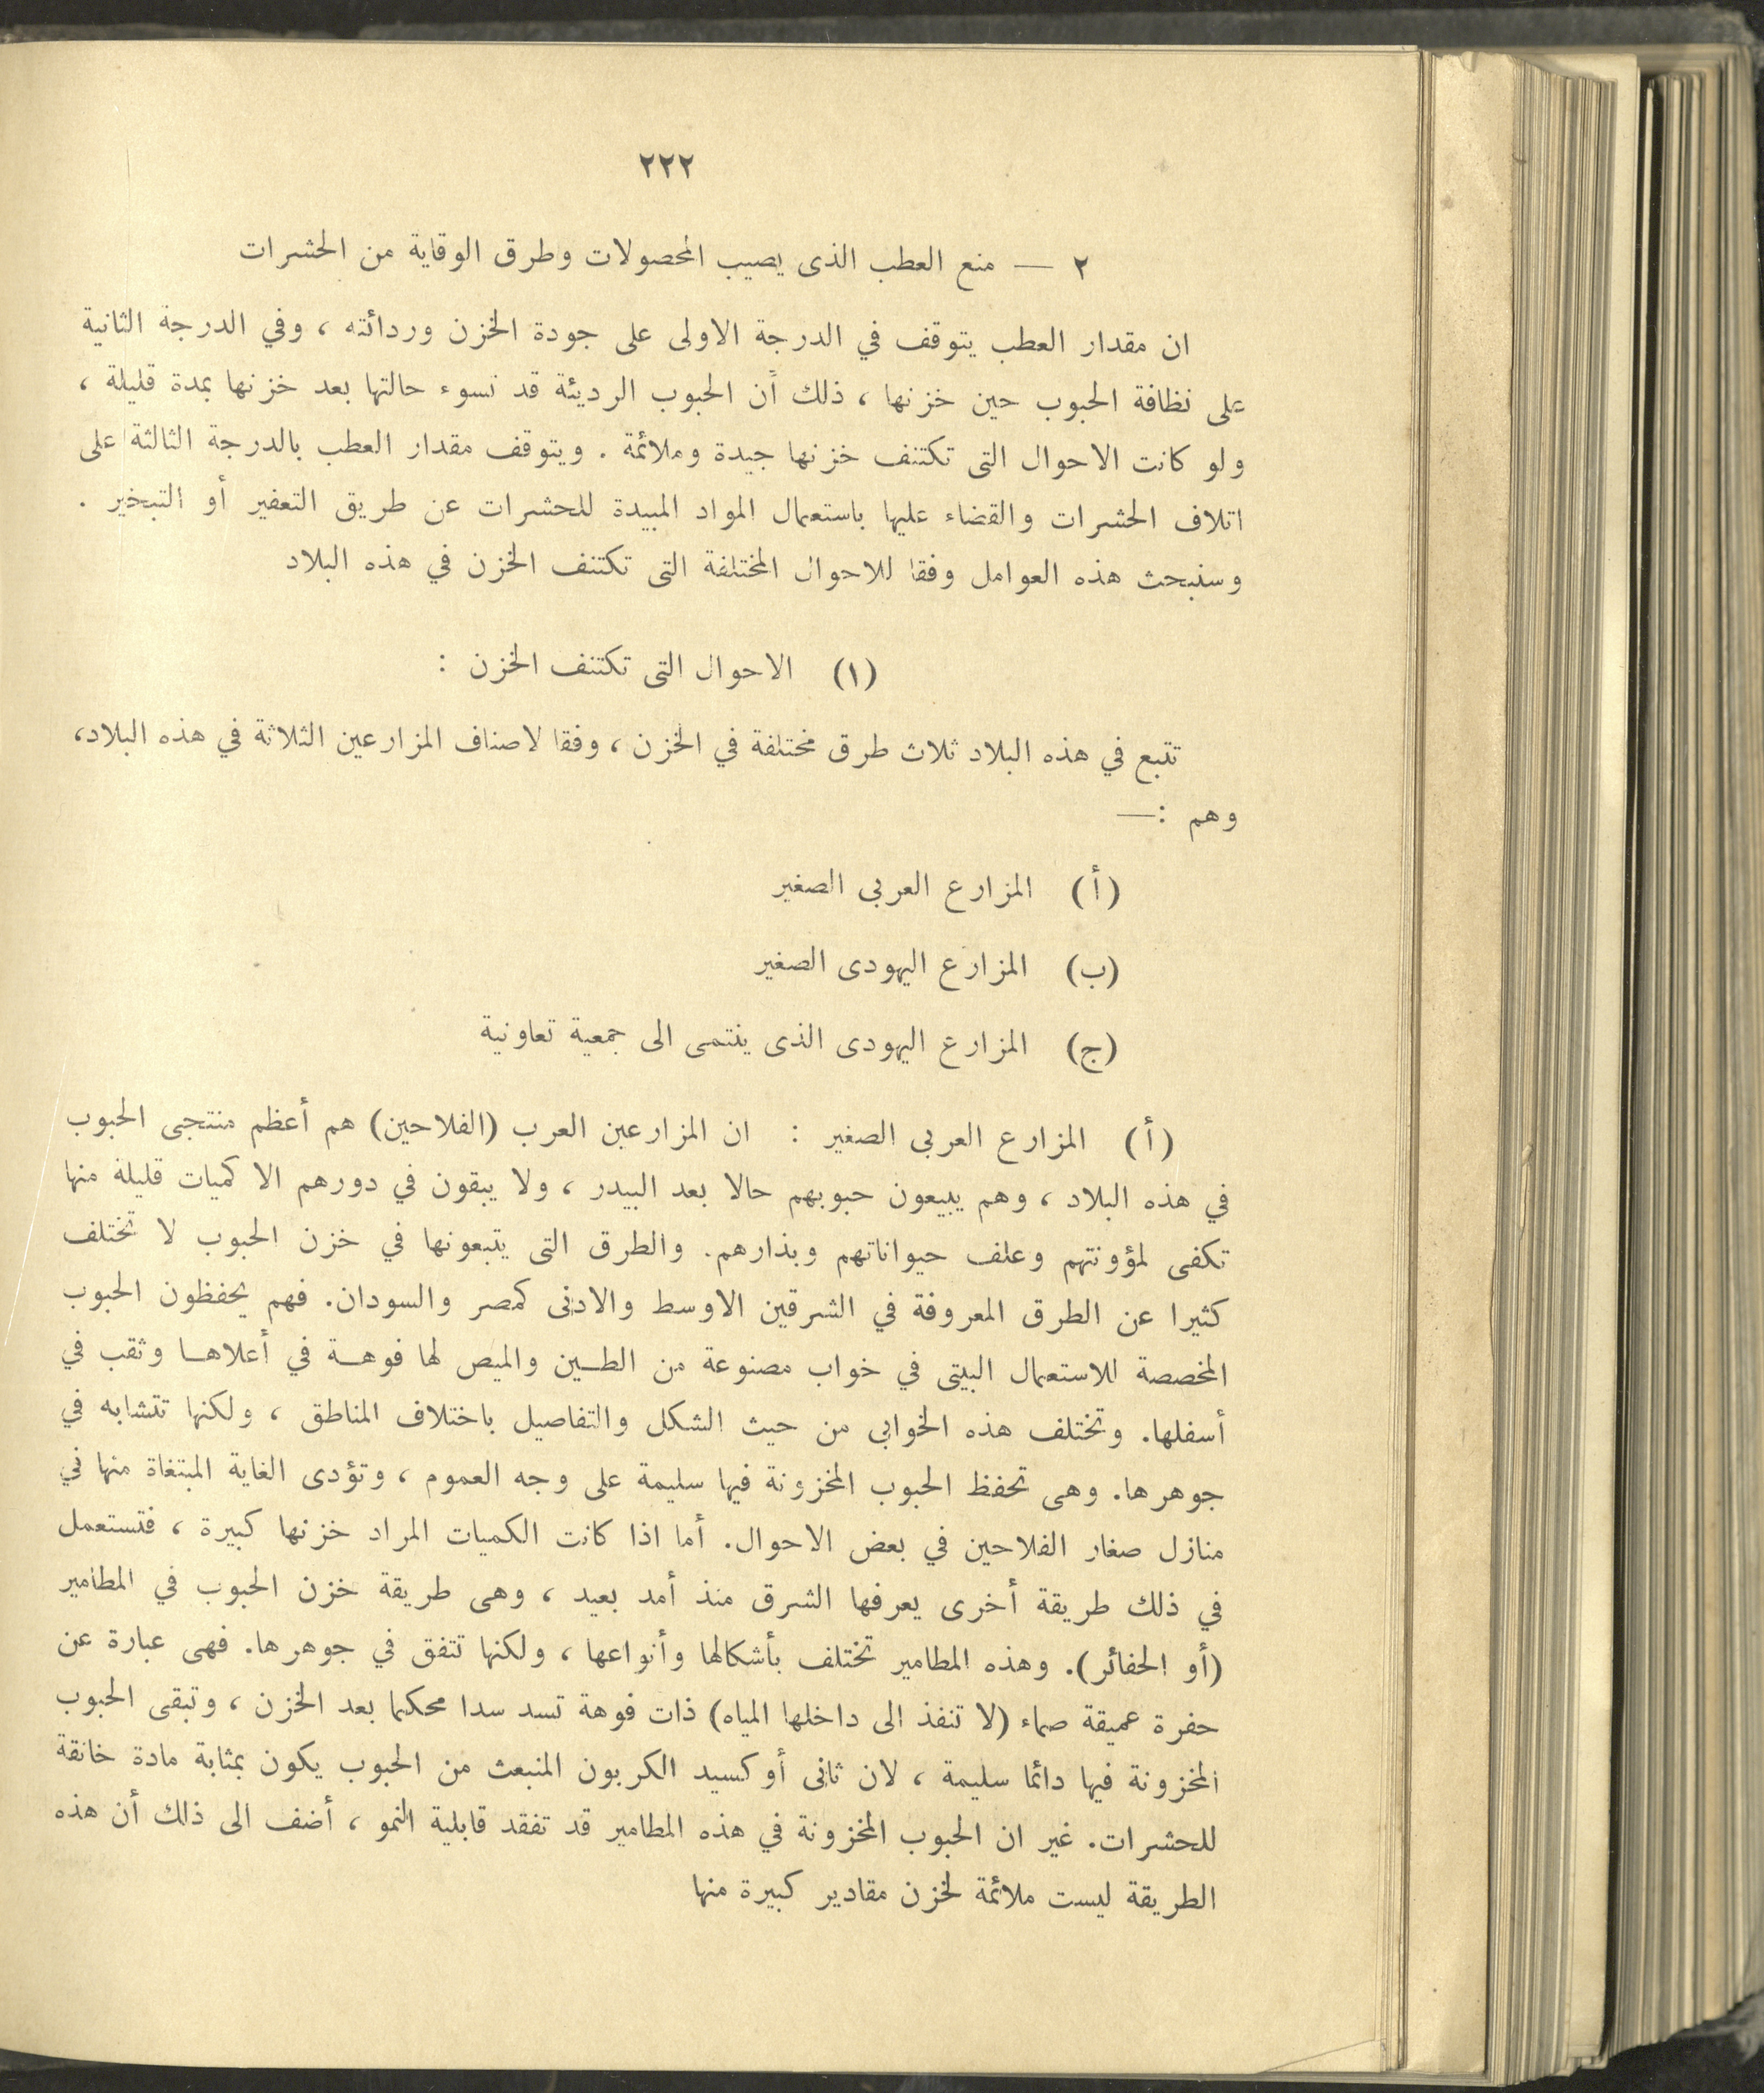 ٢٢٢
٢ — منع العطب الذى يصيب المحصولات وطرق الوقاية من الحشرات
ان مقدار العطب يتوقف في الدرجة الاولى على جودة الخزن وردائته ، وفي الدرجة الثانية
على نظافة الحبوب حين خزنها ، ذلك أن الحبوب الرديئة قد تسوء حالتها بعد خزنها بمدة قليلة ،
ولو كانت الاحوال التى تكتنف خزنها جيدة وملائمة . ويتوقف مقدار العطب بالدرجة الثالثة على
اتلاف الحشرات والقضاء عليها باستعمال المواد المبيدة للحشرات عن طريق التعفير أو التبخير .
وسنبحث هذه العوامل وفقا للاحوال المختلفة التى تكتنف الخزن في هذه البلاد
(١) الاحوال التى تكتنف الخزن :
تتبع في هذه البلاد ثلاث طرق مختلفة في الخزن ، وفقا لاصناف المزارعين الثلاثة في هذه البلاد،
وهم :—
(أ) المزارع العربى الصغير
(ب) المزارع اليهودى الصغير
(ج) المزارع اليهودى الذى ينتمى الى جمعية تعاونية
(أ) المزارع العربى الصغير : ان المزارعين العرب (الفلاحين) هم أعظم منتجى الحبوب
في هذه البلاد ، وهم يبيعون حبوبهم حالا بعد البيدر ، ولا يبقون في دورهم الا كميات قليلة منها
تكفى لمؤونتهم وعلف حيواناتهم وبذارهم. والطرق التى يتبعونها في خزن الحبوب لا تختلف
كثيرا عن الطرق المعروفة في الشرقين الاوسط والادنى كمصر والسودان. فهم يحفظون الحبوب
المخصصة للاستعمال البيتى في خواب مصنوعة من الطــين والميص لها فوهــة في أعلاهــا وثقب في
أسفلها. وتختلف هذه الخوابى من حيث الشكل والتفاصيل باختلاف المناطق ، ولكنها تتشابه في
جوهرها. وهى تحفظ الحبوب المخزونة فيها سليمة على وجه العموم ، وتؤدى الغاية المبتغاة منها في
منازل صغار الفلاحين في بعض الاحوال. أما اذا كانت الكميات المراد خزنها كبيرة ، فتستعمل
في ذلك طريقة أخرى يعرفها الشرق منذ أمد بعيد ، وهى طريقة خزن الحبوب في المطامير
(أو الحفائر). وهذه المطامير تختلف بأشكالها وأنواعها ، ولكنها تتفق في جوهرها. فهى عبارة عن
حفرة عميقة صماء (لا تنفذ الى داخلها المياه) ذات فوهة تسد سدا محكما بعد الخزن ، وتبقى الحبوب
المخزونة فيها دائما سليمة ، لان ثانى أوكسيد الكربون المنبعث من الحبوب يكون بمثابة مادة خانقة
للحشرات. غير ان الحبوب المخزونة في هذه المطامير قد تفقد قابلية النمو ، أضف الى ذلك أن هذه
الطريقة ليست ملائمة لخزن مقادير كبيرة منها